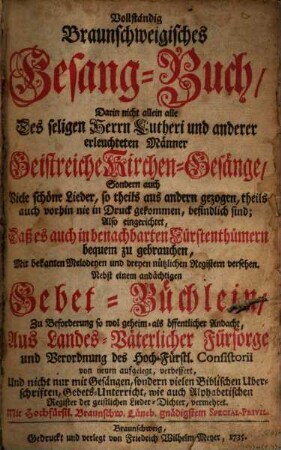 Vollständig
Braunschweigisches
Gesang-Buch/
Darin nicht allein alle
Des seligen Herrn Lutheri und anderer
erleuchteten Männer
Geistreiche Kirchen-Gesänge/
Sondern auch
Viele schöne Lieder, so theils aus andern gezogen, theils
auch vorhin nie in Druck gekommen, befindlich sind;
Also eingerichtet,
Daß es auch in benachbarten Fürstenthümern
bequem zu gebrauchen,
Mit bekanten Melodeyen und denen nützlichen Registern versehen.
Nebst einem andächtigen
Gebet-Büchlein/
Zu Beforderung so wol geheim- als öffentlicher Andacht,
Aus Landes-Väterlicher Fürsorge
und Verordnung des Hoch-Fürstl. Consistorii
von neuen aufgelegt, verbessert,
Und nicht nur mit Gesängen, sondern vielen Biblischen Uber-
schriften, Gebets-Unterricht, wie auch Alphabetischen
Register der geistlichen Lieder-Dichter, vermehret.
Mit Hochfürstl. Braunschw. Lüneb. gnädigstem SPECIAL-PRIVIL.
Braunschweig,
Gedruckt und verlegt von Friedrich Wilhelm Meyer, 1735.